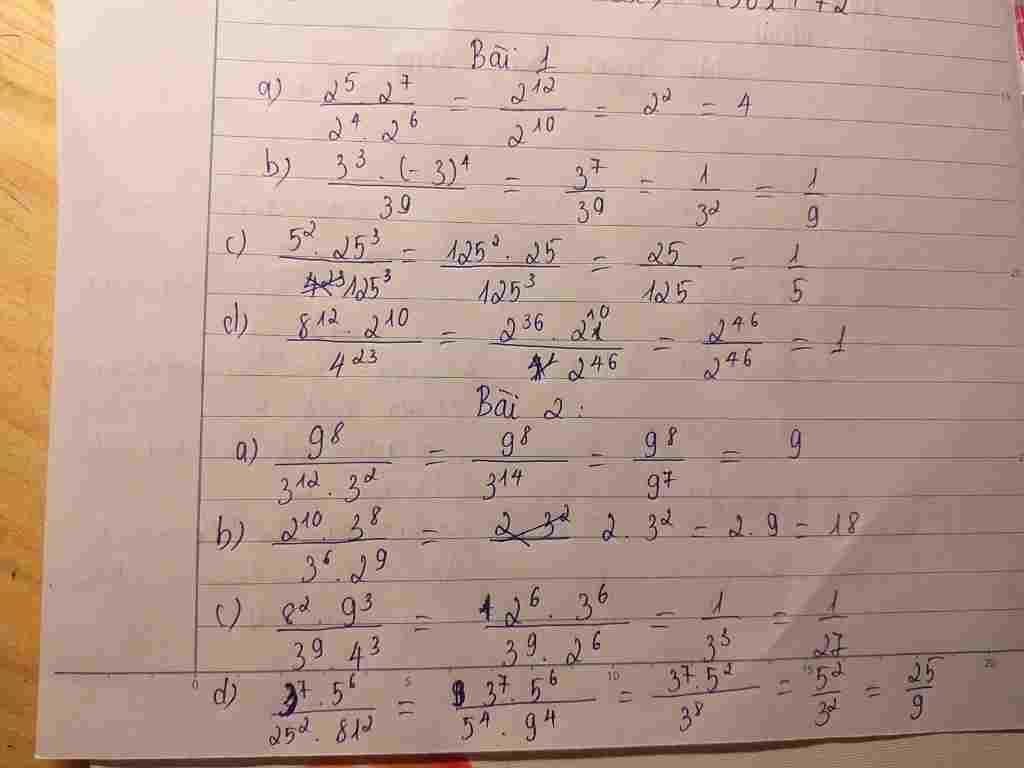 Bài 1
a) 2⁵ 2⁷ / 2⁴ . 2⁶ = 2¹² / 2¹⁰ = 2² = 4
b) 3³ . (-3)⁴ / 39 = 3⁷ / 39 = 1 / 3² = 1 / 9
c) 5² . 25³ / 125³ = 125² . 25 / 125³ = 25 / 125 = 1 / 5
d) 8¹² . 2¹⁰ / 4²³ = 2³⁶ . 2¹⁰ / 2⁴⁶ = 2⁴⁶ / 2⁴⁶ = 1
Bài 2 :
a) 9⁸ / 3¹² . 3² = 9⁸ / 3¹⁴ = 9⁸ / 9⁷ = 9
b) 2¹⁰ . 3⁸ / 3⁶ . 2⁹ = 2 . 3² = 2 . 9 = 18
c) 8² . 9³ / 39 . 4³ = 2⁶ . 3⁶ / 39 . 2⁶ = 1 / 3³ = 1 / 27
d) 3⁷ . 5⁶ / 25² . 81² = 3⁷ . 5⁶ / 5⁴ . 9⁴ = 3⁷ . 5² / 3⁸ = 5² / 3² = 25 / 9